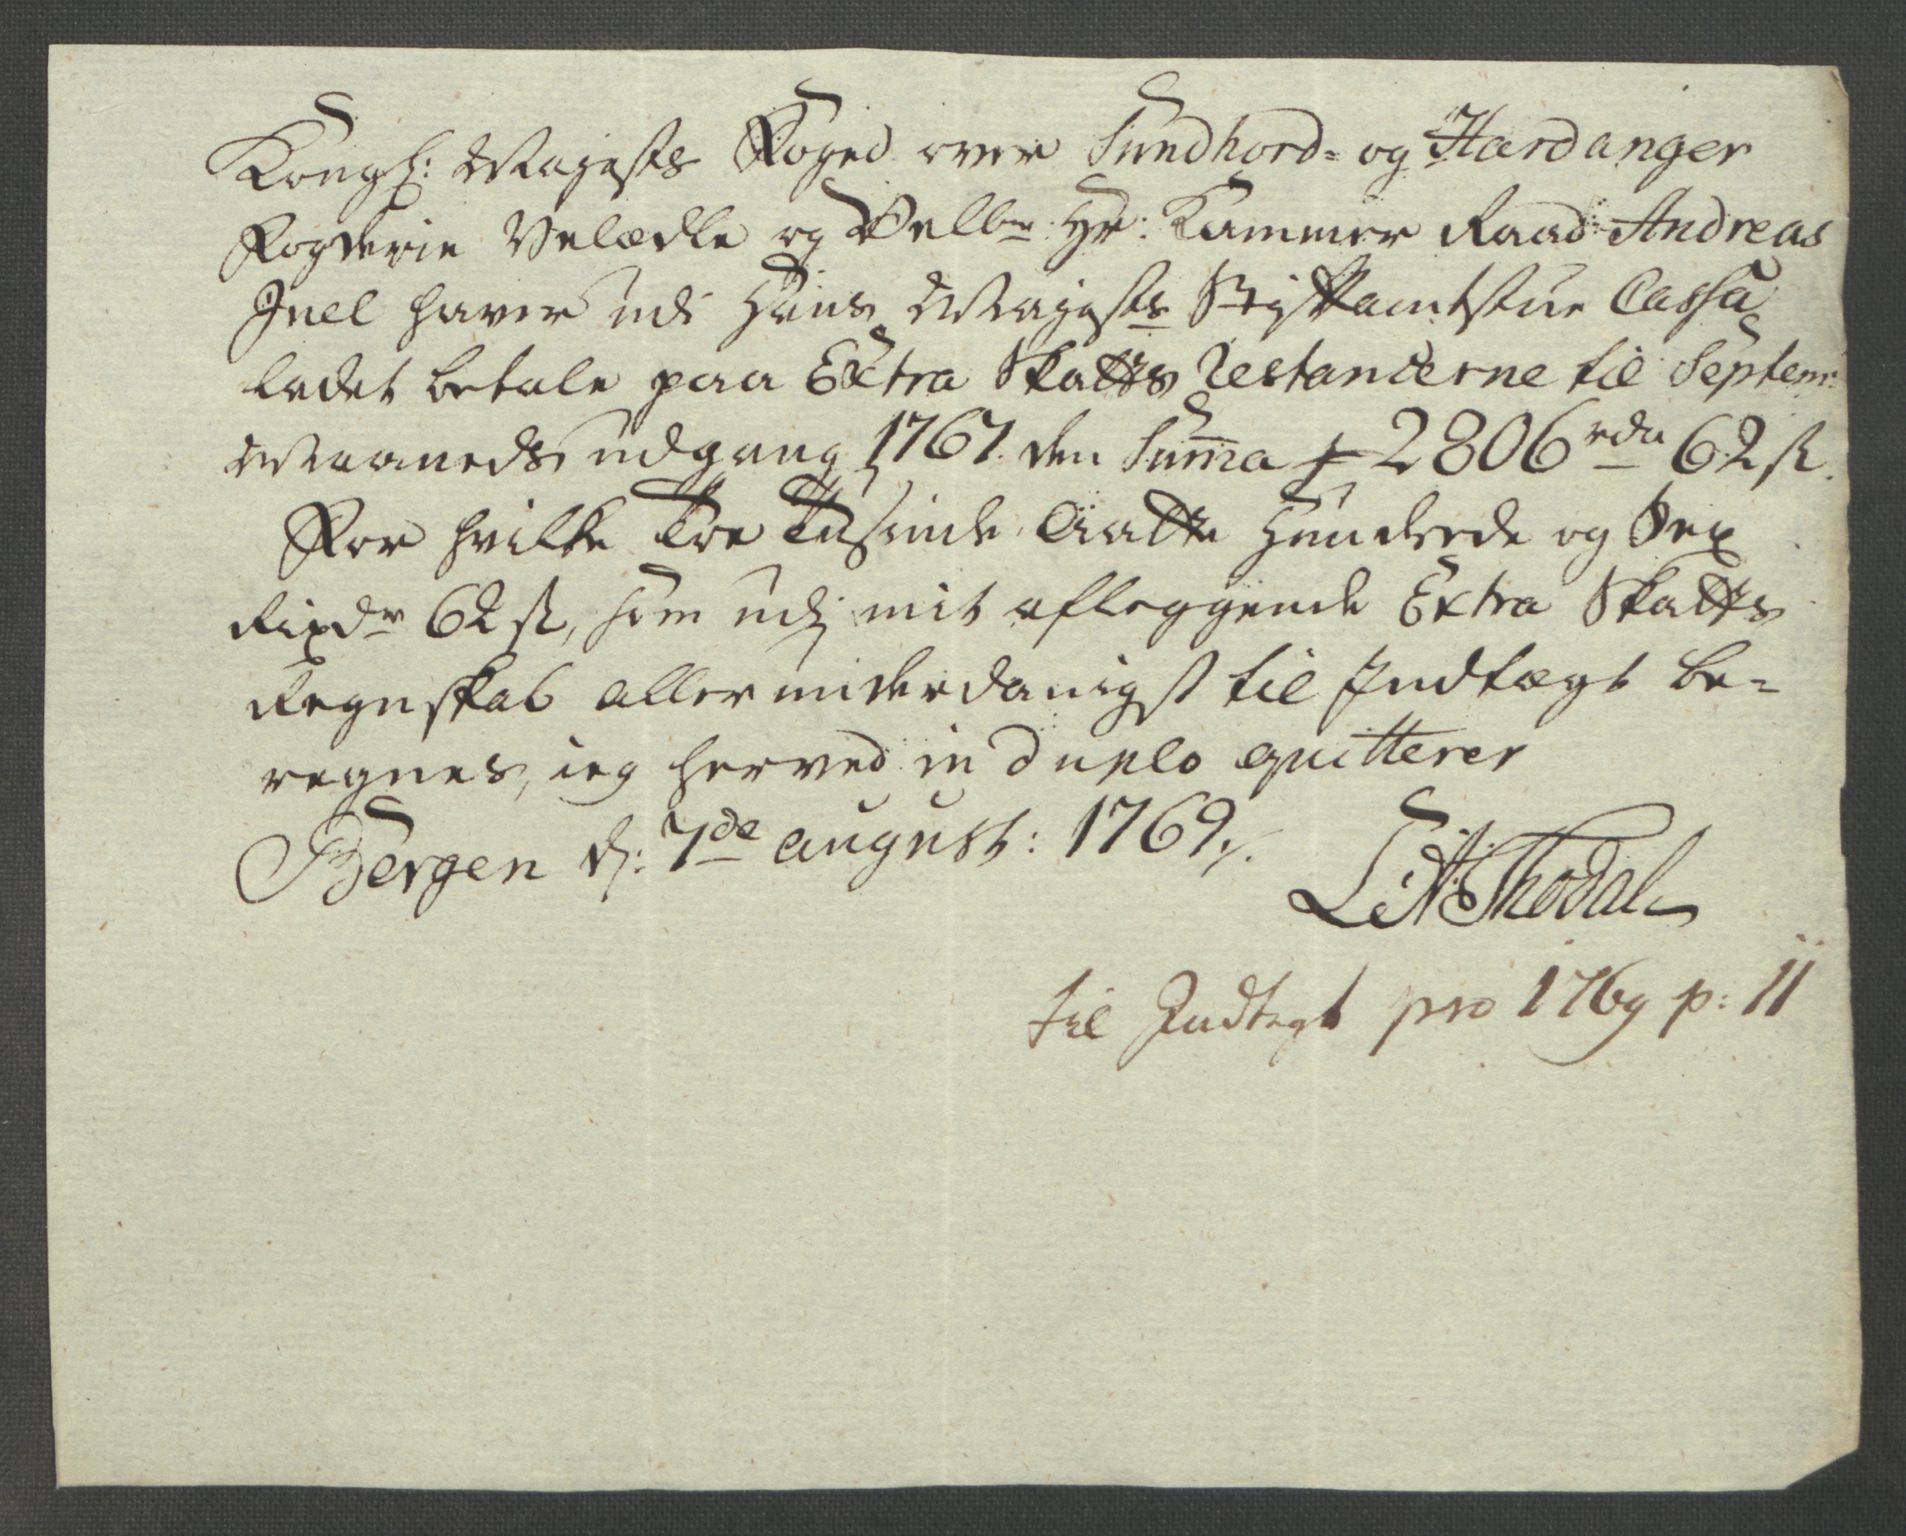 Kongl: Majests Foged over Sundhord- og Hardanger
Fogderie Velædle og Velbr Hr: Kammer Raad Andreas
Juel haver udi Hans Majests Stiftamtstue Cassa
ladet betale paa Extra Skatts Restancerne til Septem:
Maaneds udgang 1767 den Summa 2806 rdr 62 ß.
For hvilke Toe Tusinde Aatte Hunderde og Sex
Rixdr 62 ß, som udj mit aflæggende Extra Skatts
Regnskab allerunderdanigst til Indtægt be-
regnes, ieg herved in duplo quitterer
Bergen d: 7de august: 1769.
Thodal
til Indtegt pro 1769 p: 11